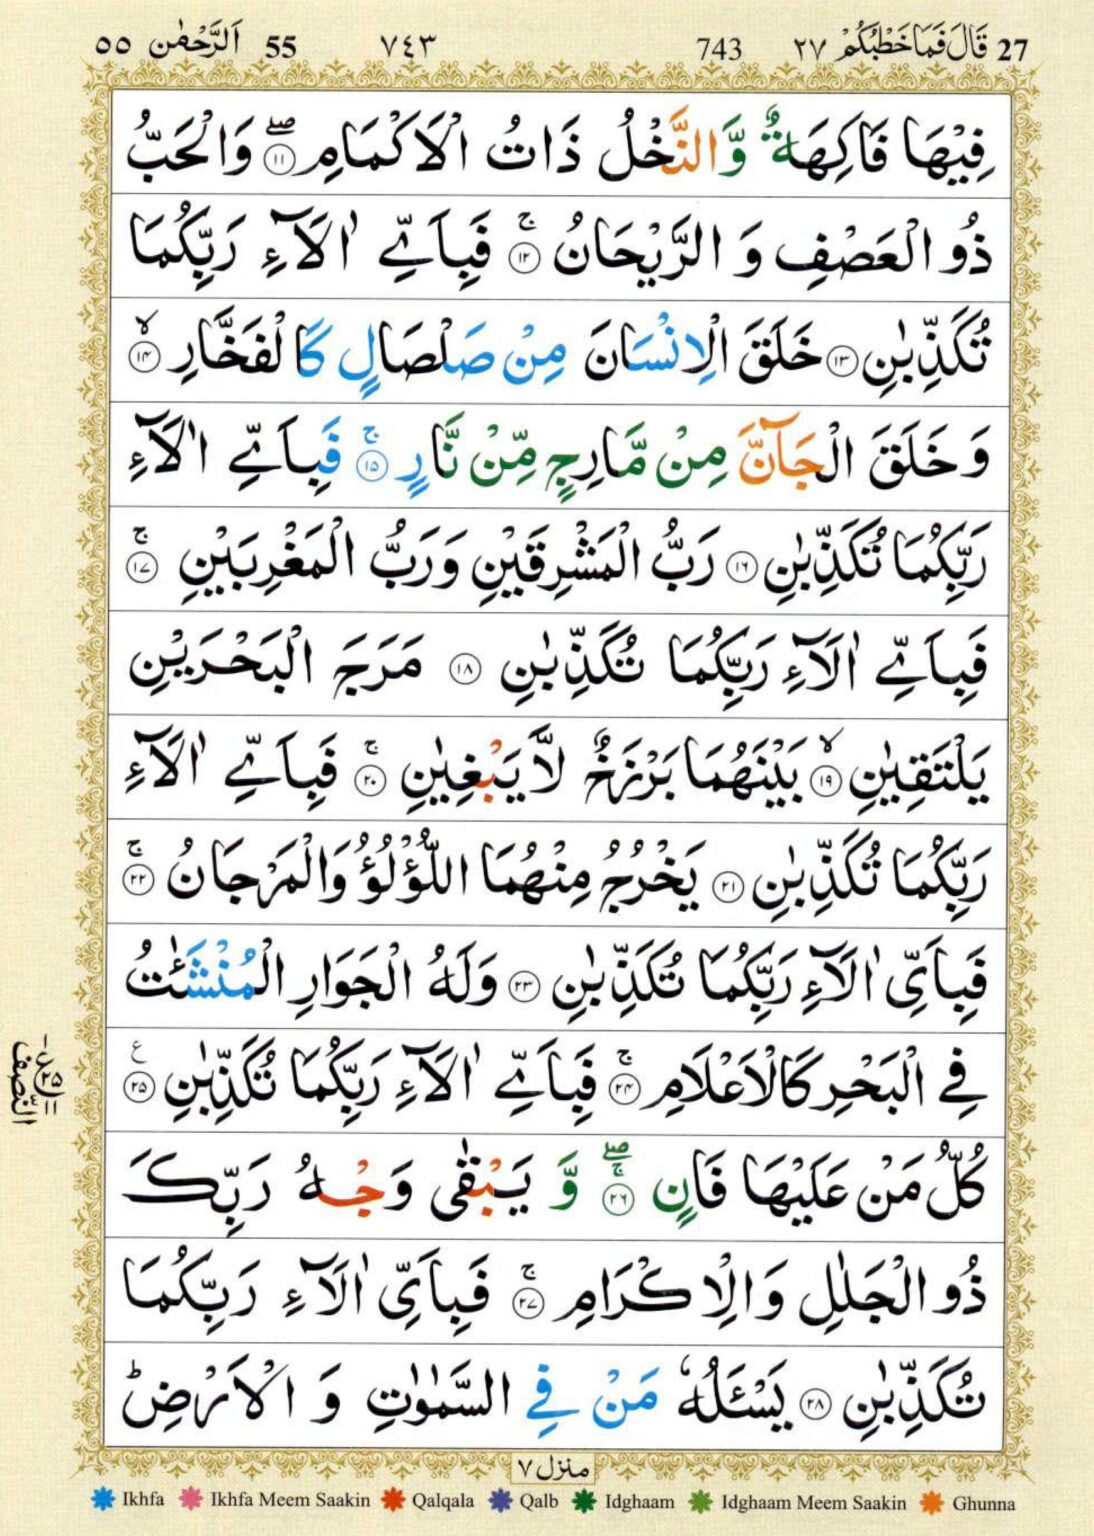 27 قَالَ فَمَا خَطْبُكُمْ ٢٧ 743 ٧٤٣ 55 اَلرَّحْمٰن ٥٥
فِيْهَا فَاكِهَةٌ وَّالنَّخْلُ ذَاتُ الْاَكْمَامِ ۖ ١١ وَالْحَبُّ
ذُو الْعَصْفِ وَ الرَّيْحَانُ ۚ ١٢ فَبِاَيِّ اٰلَآءِ رَبِّكُمَا
تُكَذِّبٰنِ ١٣ خَلَقَ الْاِنْسَانَ مِنْ صَلْصَالٍ كَالْفَخَّارِ ۙ ١٤
وَ خَلَقَ الْجَآنَّ مِنْ مَّارِجٍ مِّنْ نَّارٍ ۚ ١٥ فَبِاَيِّ اٰلَآءِ
رَبِّكُمَا تُكَذِّبٰنِ ١٦ رَبُّ الْمَشْرِقَيْنِ وَ رَبُّ الْمَغْرِبَيْنِ ۚ ١٧
فَبِاَيِّ اٰلَآءِ رَبِّكُمَا تُكَذِّبٰنِ ١٨ مَرَجَ الْبَحْرَيْنِ
يَلْتَقِيٰنِ ۙ ١٩ بَيْنَهُمَا بَرْزَخٌ لَّا يَبْغِيٰنِ ۚ ٢٠ فَبِاَيِّ اٰلَآءِ
رَبِّكُمَا تُكَذِّبٰنِ ٢١ يَخْرُجُ مِنْهُمَا اللُّؤْلُؤُ وَالْمَرْجَانُ ۚ ٢٢
فَبِاَيِّ اٰلَآءِ رَبِّكُمَا تُكَذِّبٰنِ ٢٣ وَلَهُ الْجَوَارِ الْمُنْشَئٰتُ
فِي الْبَحْرِ كَالْاَعْلَامِ ۚ ٢٤ فَبِاَيِّ اٰلَآءِ رَبِّكُمَا تُكَذِّبٰنِ ٢٥ ع
ع ٢٥
النّصف
كُلُّ مَنْ عَلَيْهَا فَانٍ ۖۚ ٢٦ وَّ يَبْقٰى وَجْهُ رَبِّكَ
ذُو الْجَلٰلِ وَالْاِكْرَامِ ۚ ٢٧ فَبِاَيِّ اٰلَآءِ رَبِّكُمَا
تُكَذِّبٰنِ ٢٨ يَسْئَلُهٗ مَنْ فِي السَّمٰوٰتِ وَ الْاَرْضِ ؕ
منزل ٧
Ikhfa Ikhfa Meem Saakin Qalqala Qalb Idghaam Idghaam Meem Saakin Ghunna